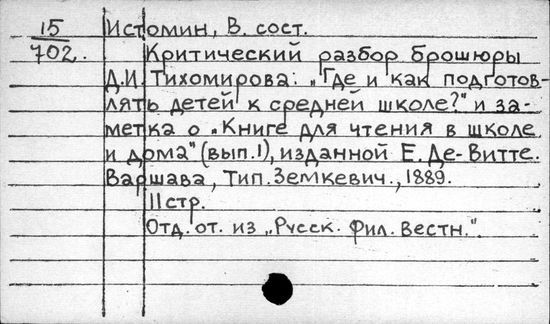 15 Истомин, В. сост.
702. Критический разбор брошюры
Д.И. Тихомирова: „Где и как подготов-
лять детей к средней школе?" и за-
метка о „Книге для чтения в школе
и дома" (вып. 1), изданной Е. Де-Витте.
Варшава, Тип. Земкевич., 1889.
11 стр.
Отд. от. из „Русск. Фил. Вестн.".